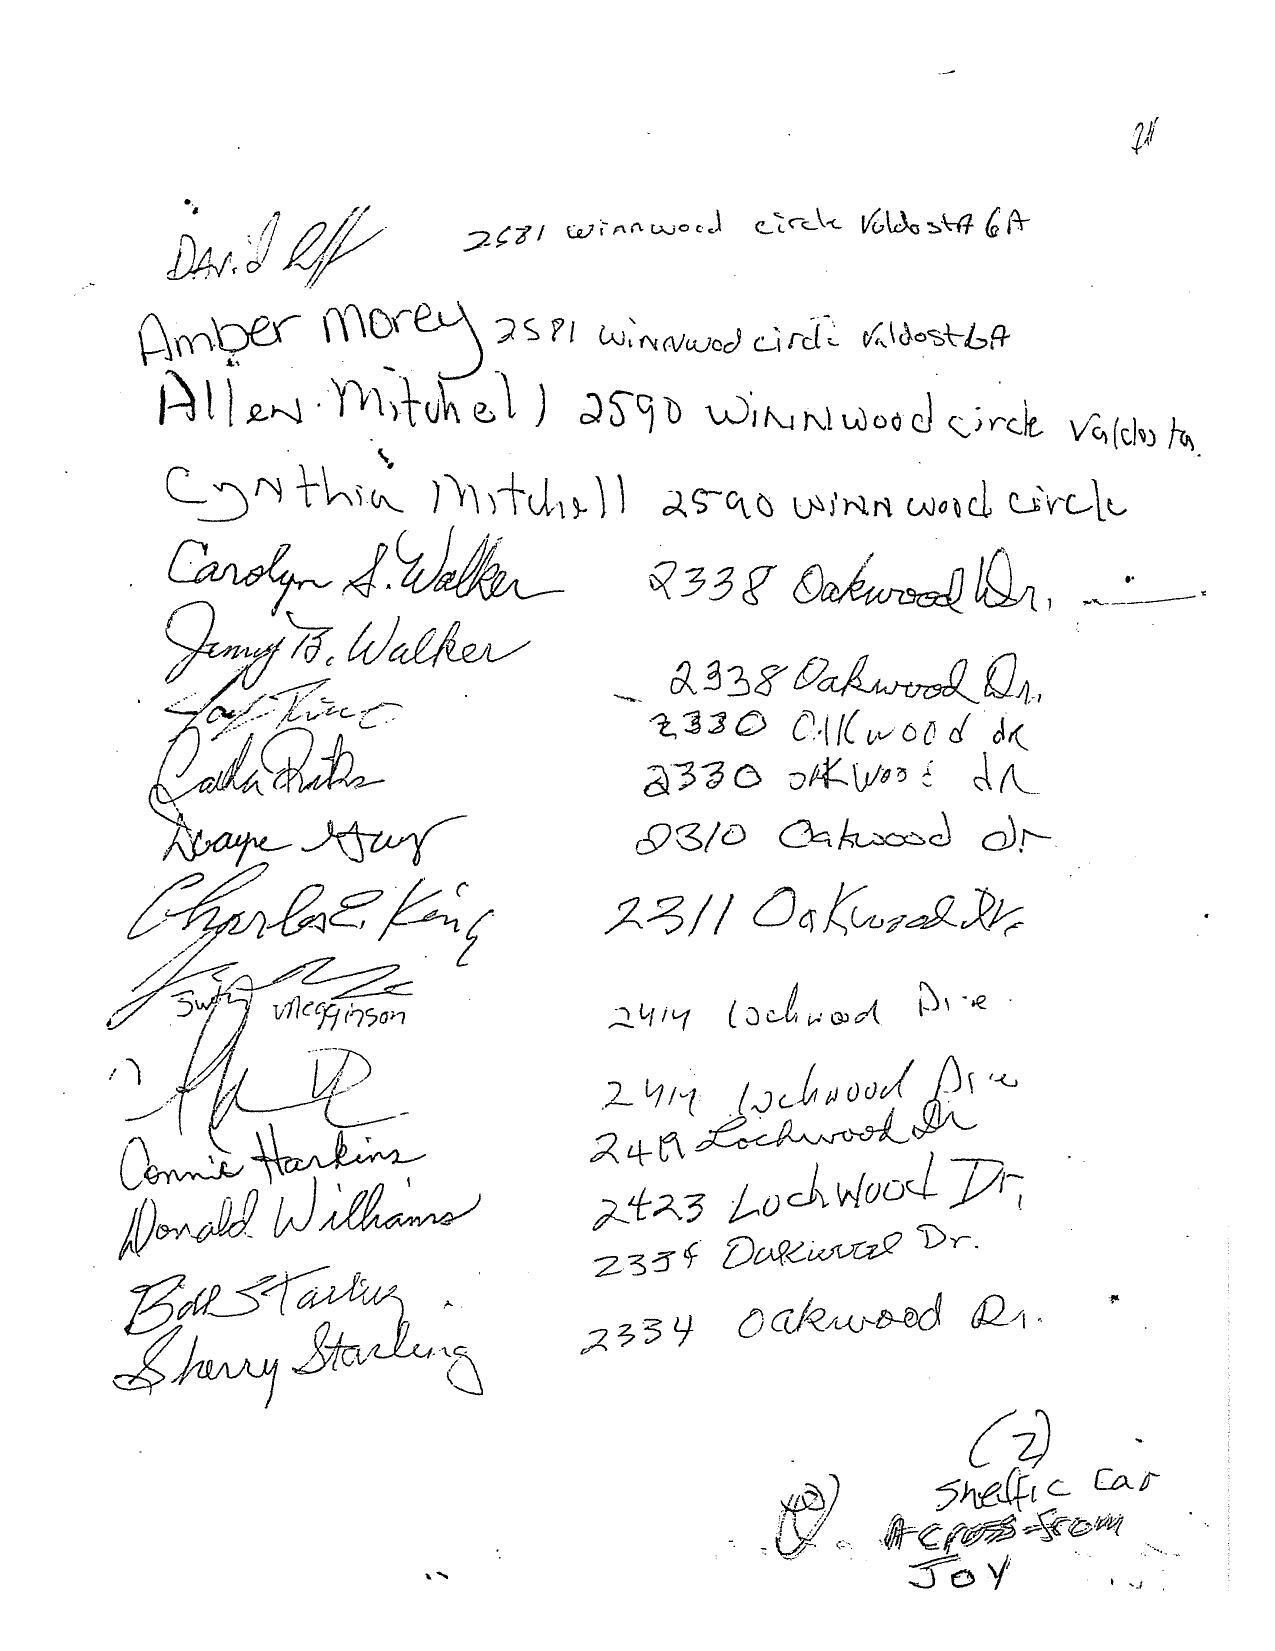 21
David 2581 winnwood circle Valdosta GA
Amber Morey 2581 winnwood circle Valdosta GA
Allen Mitchell 2590 Winnwood circle Valdosta
Cynthia Mitchell 2590 winnwood circle
Carolyn S. Walker 2338 Oakwood Dr.
Jimmy B. Walker 2338 Oakwood Dr.
2330 Oakwood dr
2330 oakwood dr
Dwayne 2310 Oakwood dr
Charles E. King 2311 Oakwood Dr.
Megginson 2414 Lochwood
2414 Lochwood
Connie Harkins 2419 Lochwood Dr
Donald Williams 2423 Lochwood Dr.
Bill Starling 2334 Oakwood Dr.
Sherry Starling 2334 Oakwood Dr.
(2)
car
Across from
Joy